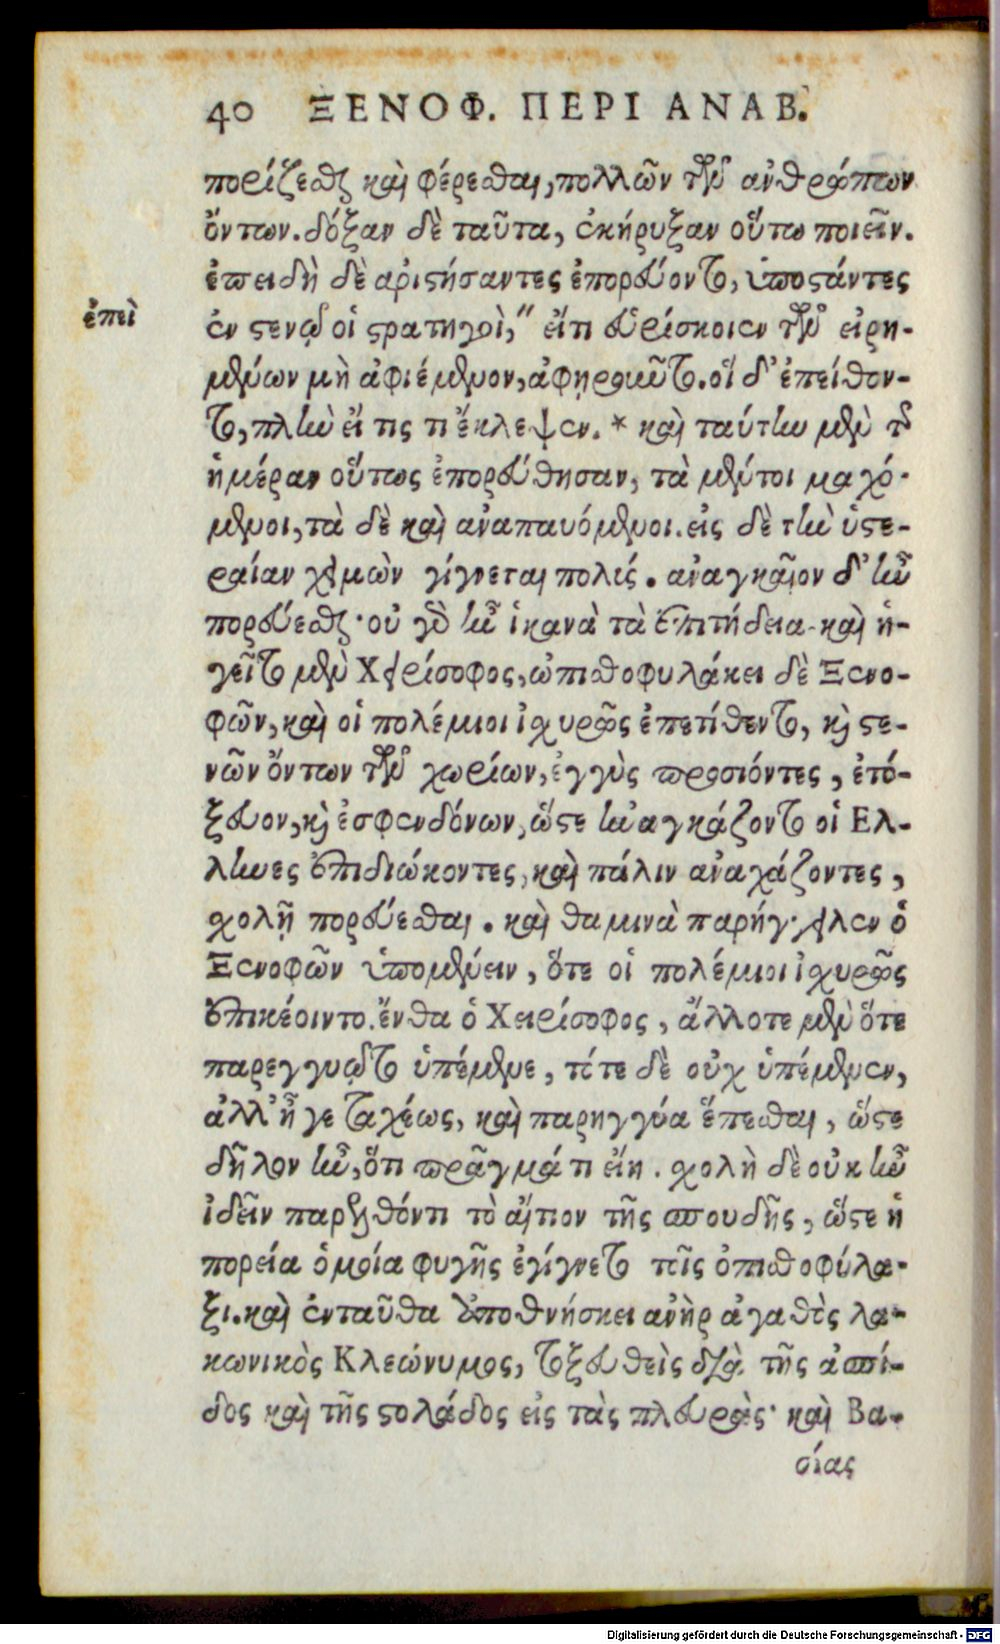 40 ΞΕΝΟΦ. ΠΕΡΙ ΑΝΑΒ.
πορίζεσθαι καὶ φέρεσθαι, πολλῶν τῶν ἀνθρώπων
ὄντων. δόξαν δὲ ταῦτα, ἐκήρυξαν οὕτω ποιεῖν.
ἐπειδὴ δὲ ἀριστήσαντες ἐπορεύοντο, ὑποστάντες
ἐπεὶ
ἐν στενῷ οἱ στρατηγοὶ, " εἴ τι εὑρίσκοιεν τῶν εἰρη-
μένων μὴ ἀφιέμενον, ἀφῃροῦντο. οἱ δ' ἐπείθον-
το, πλὴν εἴ τις τι ἔκλεψεν. * καὶ ταύτην μὲν τὴν
ἡμέραν οὕτως ἐπορεύθησαν, τὰ μέντοι μαχό-
μενοι, τὰ δὲ καὶ ἀναπαυόμενοι. εἰς δὲ τὴν ὑστε-
ραίαν χειμὼν γίγνεται πολύς. ἀναγκαῖον δ' ἦν
πορεύεσθαι· οὐ γὰρ ἦν ἱκανὰ τὰ ἐπιτήδεια. καὶ ἡ-
γεῖτο μὲν Χειρίσοφος, ὠπισθοφυλάκει δὲ Ξενο-
φῶν, καὶ οἱ πολέμιοι ἰσχυρῶς ἐπετίθεντο, καὶ στε-
νῶν ὄντων τῶν χωρίων, ἐγγὺς προσιόντες, ἐτό-
ξευον, καὶ ἐσφενδόνων, ὥστε ἠναγκάζοντο οἱ Ελ-
ληνες ἐπιδιώκοντες, καὶ πάλιν ἀναχάζοντες,
σχολῇ πορεύεσθαι. καὶ θαμινὰ παρήγγελλεν ὁ
Ξενοφῶν ὑπομένειν, ὅτε οἱ πολέμιοι ἰσχυρῶς
ἐπικέοιντο. ἔνθα ὁ Χειρίσοφος, ἄλλοτε μὲν ὅτε
παρεγγυῷτο ὑπέμενε, τότε δὲ οὐχ ὑπέμενεν,
ἀλλ' ἦγε ταχέως, καὶ παρηγγύα ἕπεσθαι, ὥστε
δῆλον ἦν, ὅτι πρᾶγμά τι εἴη. σχολὴ δὲ οὐκ ἦν
ἰδεῖν παρελθόντι τὸ αἴτιον τῆς σπουδῆς, ὥστε ἡ
πορεία ὁμοία φυγῆς ἐγίγνετο τοῖς ὀπισθοφύλα-
ξι. καὶ ἐνταῦθα ἀποθνήσκει ἀνὴρ ἀγαθὸς λα-
κωνικὸς Κλεώνυμος, τοξευθεὶς διὰ τῆς ἀσπί-
δος καὶ τῆς στολάδος εἰς τὰς πλευρὰς· καὶ Βα-
σίας
Digitalisierung gefördert durch die Deutsche Forschungsgemeinschaft - DFG